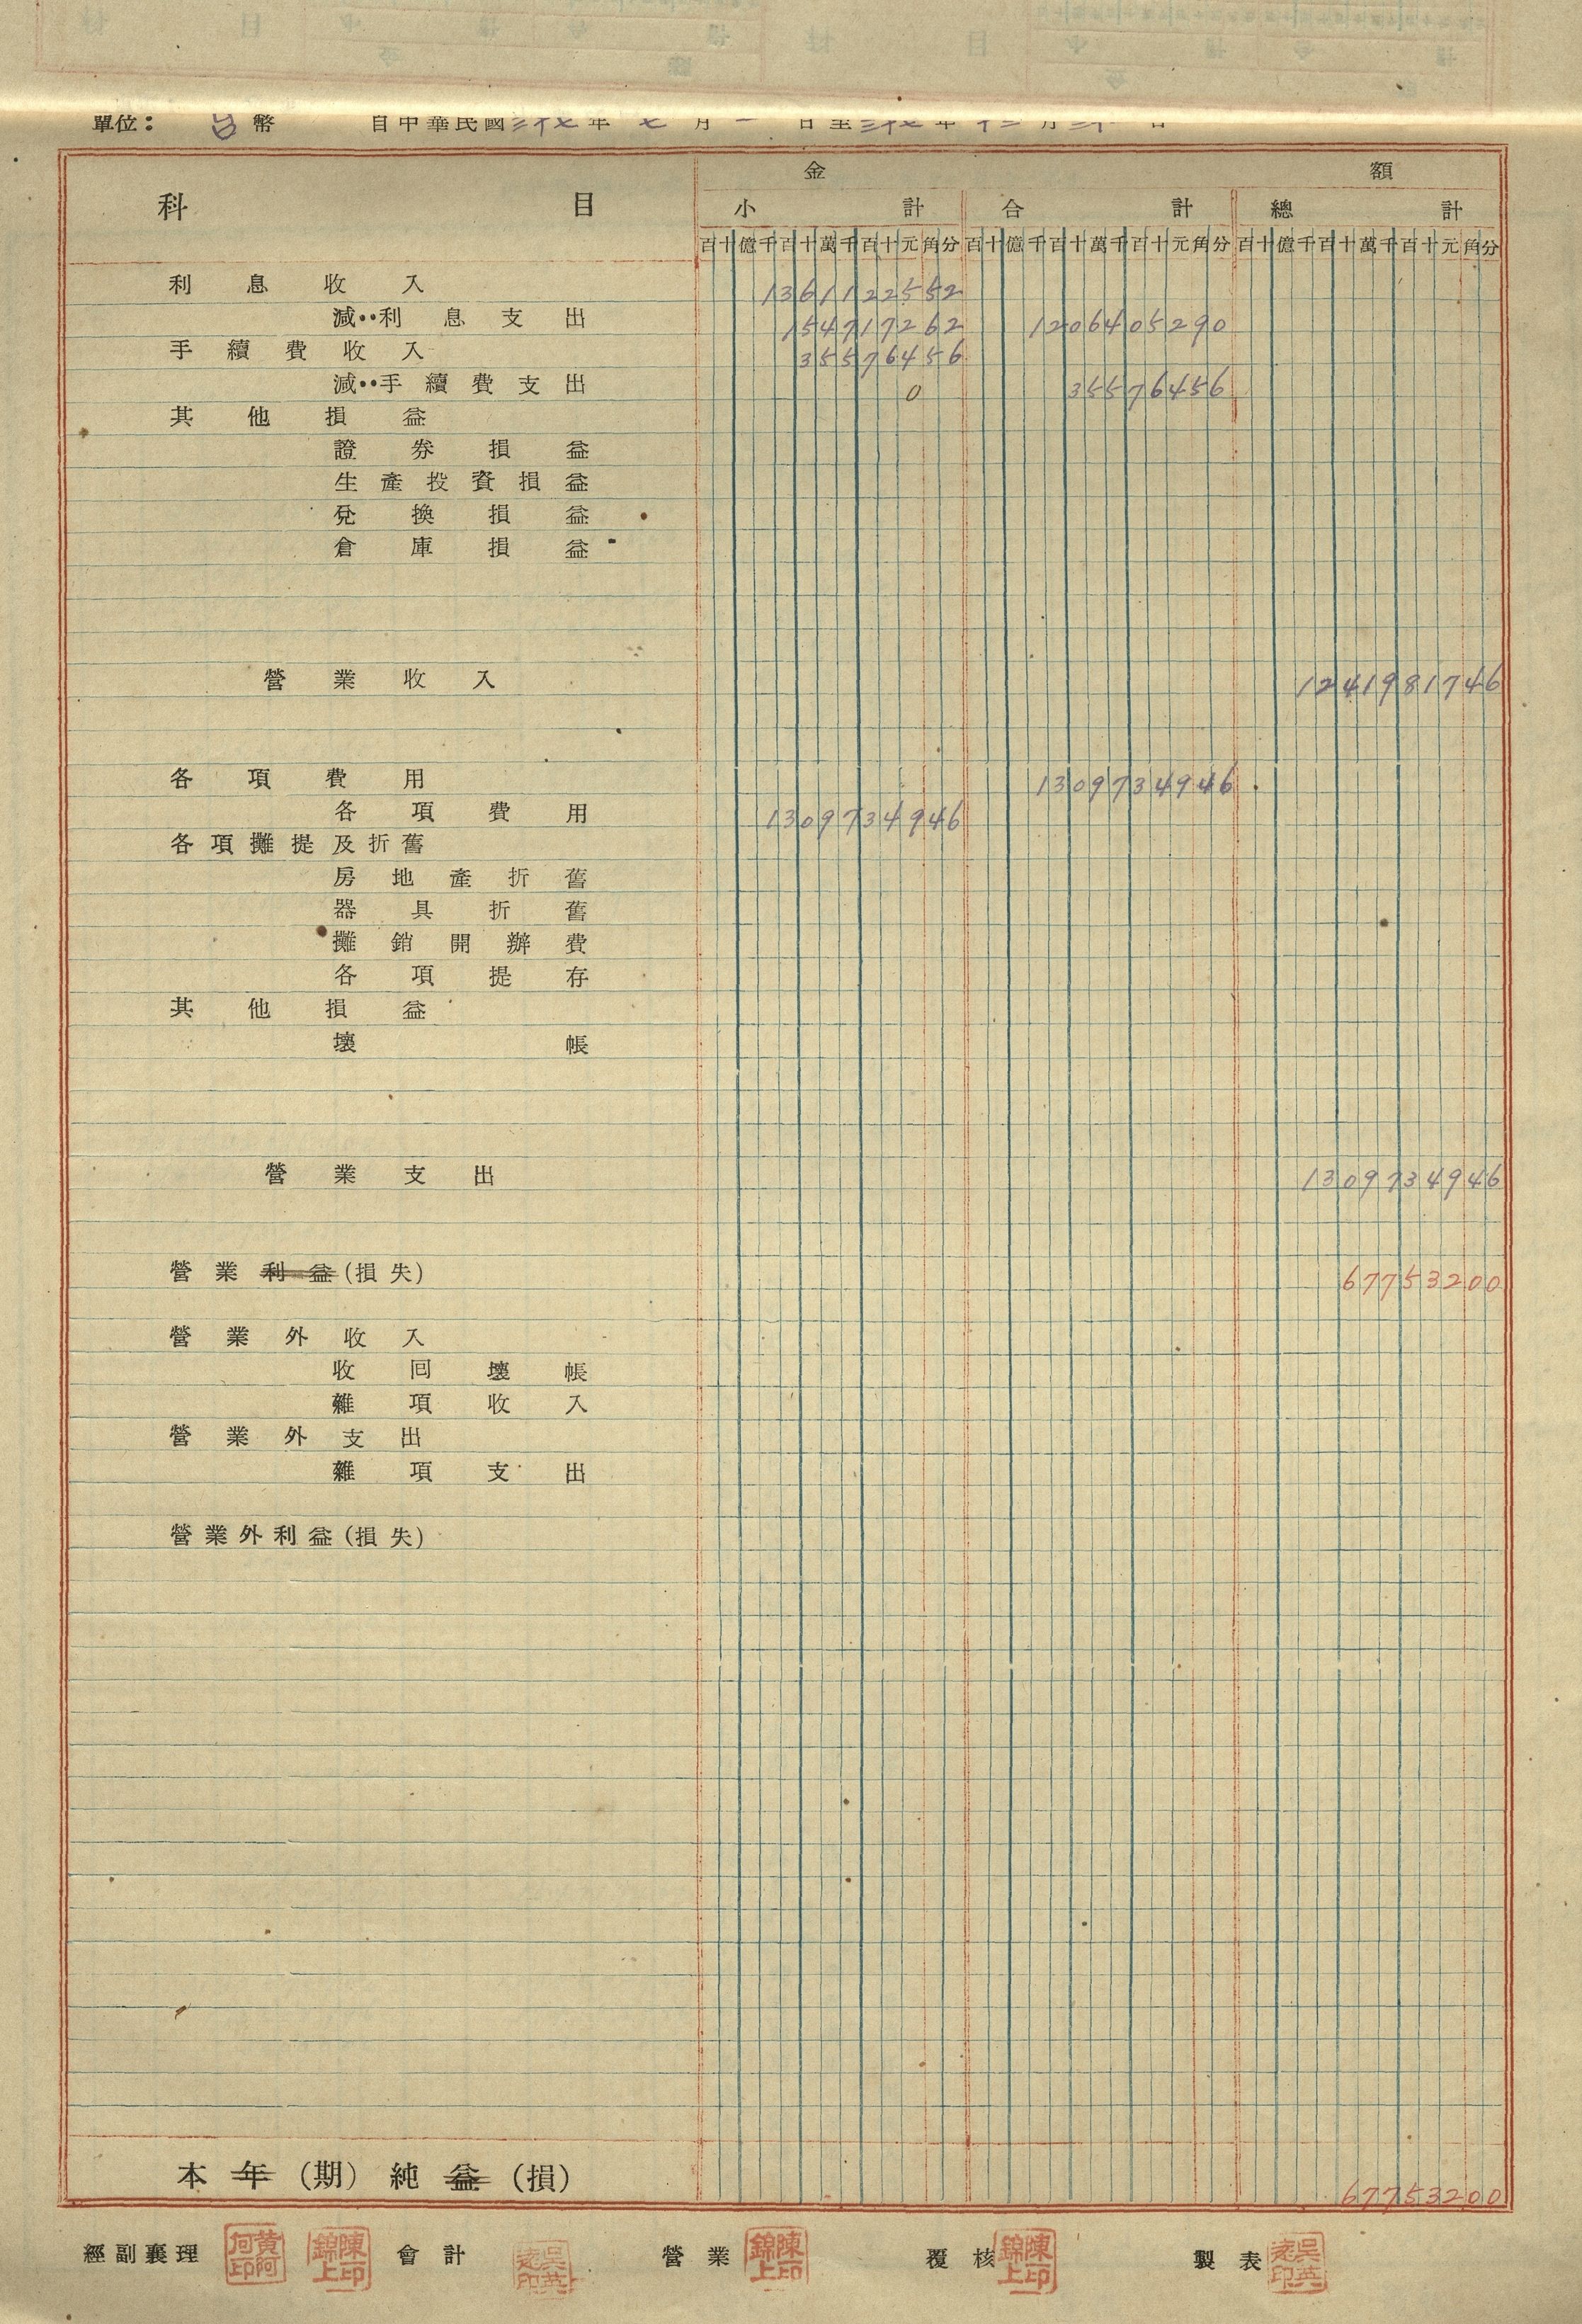 單位：台幣 自中華民國三十七年七月一日至三十七年十二月三十一日
科目 金額
小計 合計 總計
百十億千百十萬千百十元角分 百十億千百十萬千百十元角分 百十億千百十萬千百十元角分
利息收入 1361122552
減：利息支出 154717262 1206405290
手續費收入 35576456
減：手續費支出 0 35576456
其他損益
證券損益
生產投資損益
兌換損益
倉庫損益
營業收入 1241981746
各項費用 1309734946
各項費用 1309734946
各項攤提及折舊
房地產折舊
器具折舊
攤銷開辦費
各項提存
其他損益
壞帳
營業支出 1309734946
營業利益(損失) 67753200
營業外收入
收回壞帳
雜項收入
營業外支出
雜項支出
營業外利益(損失)
本年(期)純益(損) 67753200
經副襄理 會計 營業 覆核 製表
陳錦上印 陳錦上印 陳錦上印